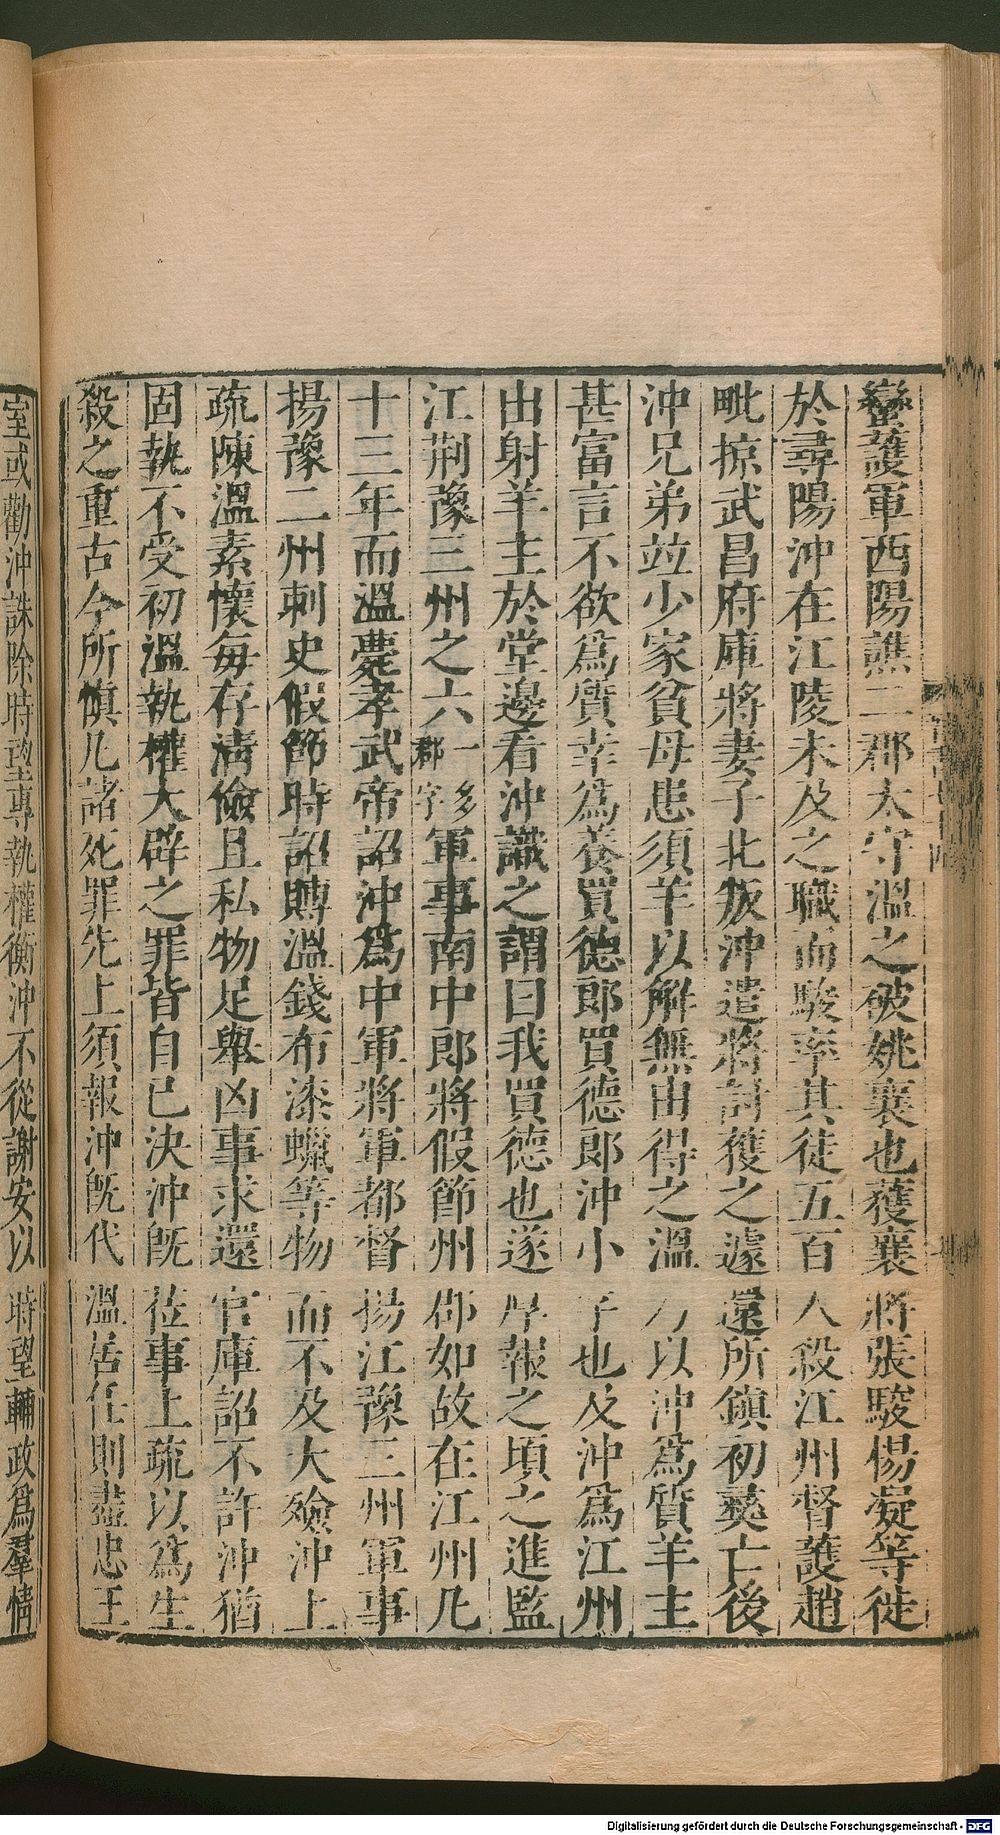 蠻護軍西陽譙二郡太守溫之破姚襄也獲襄將張駿楊凝等徙
於尋陽沖在江陵未及之職而駿率其徒五百人殺江州督護趙
毗掠武昌府庫將妻子北叛沖遣將討獲之遽還所鎮初彝亡後
沖兄弟竝少家貧母患須羊以解無由得之溫乃以沖爲質羊主
甚富言不欲爲質幸爲養買德郎買德郎沖小字也及沖爲江州
出射羊主於堂邊看沖識之謂曰我買德也遂厚報之頃之進監
江荆豫三州之六一多郡字軍事南中郎將假節州郡如故在江州凡
十三年而溫薨孝武帝詔沖爲中軍將軍都督揚江豫三州軍事
揚豫二州刺史假節時詔賻溫錢布漆蠟等物而不及大殮沖上
疏陳溫素懷每存淸儉且私物足舉凶事求還官庫詔不許沖猶
固執不受初溫執權大辟之罪皆自己決沖旣莅事上疏以爲生
殺之重古今所慎凡諸死罪先上須報沖旣代溫居任則盡忠王
室或勸沖誅除時望專執權衡沖不從謝安以時望輔政爲羣情
Digitalisierung gefördert durch die Deutsche Forschungsgemeinschaft - DFG